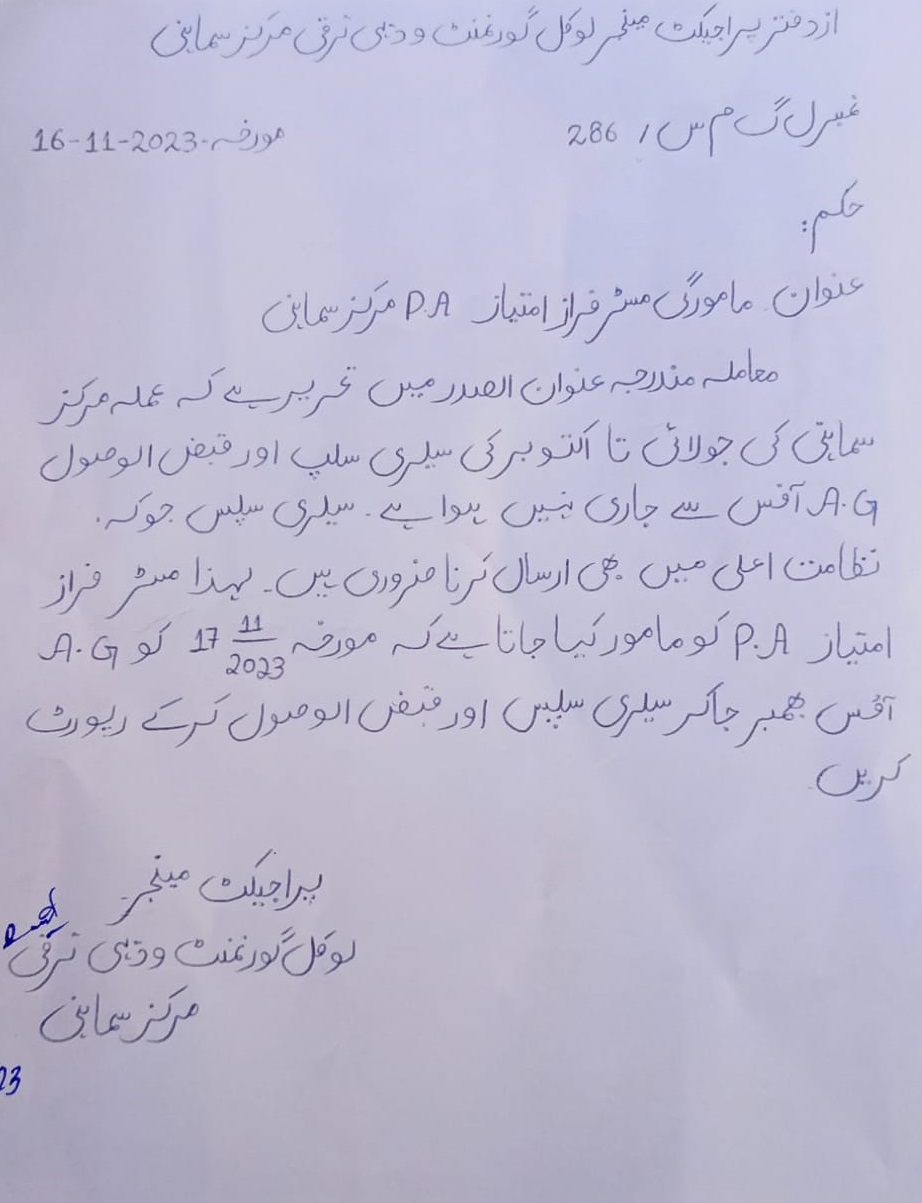 از دفتر پراجیکٹ مینجر لوکل گورنمنٹ و دہی ترقی مرکز سماہنی
نمبر ل گ م س / 286 مورخہ 16-11-2023
حکم:
عنوان۔ مامورگی مسٹر فراز امتیاز P.A مرکز سماہنی
معاملہ مندرجہ عنوان الصدر میں تحریر ہے کہ عملہ مرکز
سماہنی کی جولائی تا اکتوبر کی سیلری سلپ اور قبض الوصول
A.G آفس سے جاری نہیں ہوا ہے۔ سیلری سلپس جو کہ۔
نظامت اعلی میں بھی ارسال کرنا ضروری ہیں۔ لہذا مسٹر فراز
امتیاز P.A کو مامور کیا جاتا ہے کہ مورخہ 17 11/2023 کو A.G
آفس بھمبر جا کر سیلری سلپس اور قبض الوصول کر کے رپورٹ
کریں
پراجیکٹ مینجر
لوکل گورنمنٹ و دہی ترقی
مرکز سماہنی
23